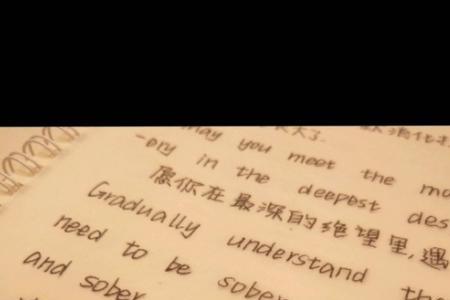 may you meet the
-ory in the deepest des
愿你在最深的绝望里,遇
Gradually understand
need to be sober
and sober